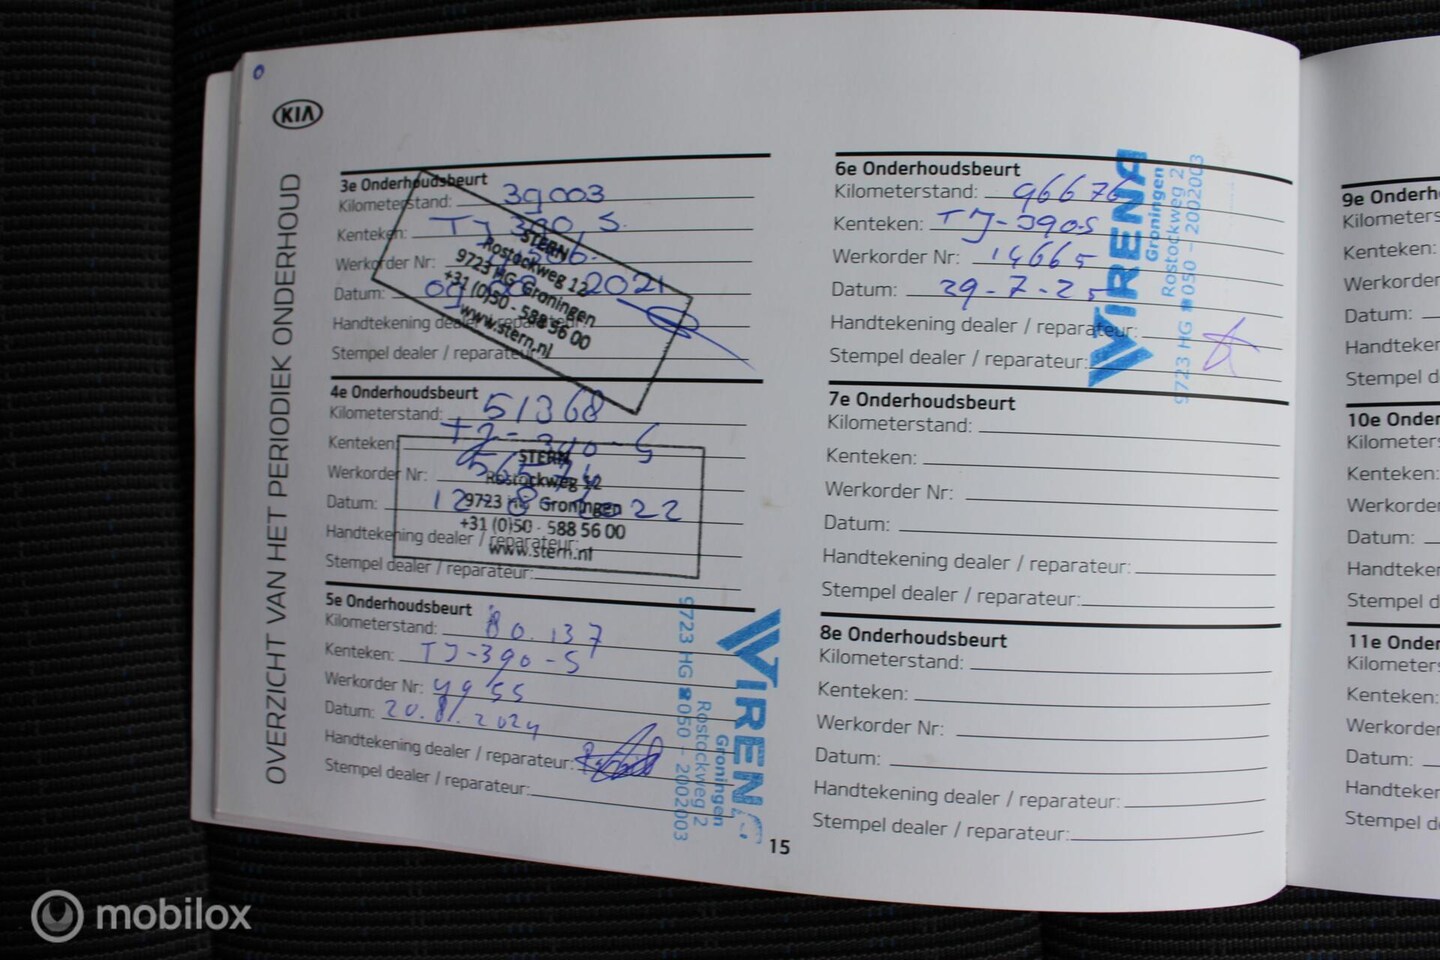 KIA
OVERZICHT VAN HET PERIODIEK ONDERHOUD
3e Onderhoudsbeurt
Kilometerstand: 39003
Kenteken: TJ 390 S.
Werkorder Nr:
Datum: 2021
Handtekening dealer / reparateur:
Stempel dealer / reparateur:
STERN
Rostockweg 12
9723 HG Groningen
+31 (0)50 - 588 56 00
www.stern.nl
4e Onderhoudsbeurt
Kilometerstand: 51368
Kenteken: TJ-390-S
Werkorder Nr:
Datum: 12-8-2022
Handtekening dealer / reparateur:
Stempel dealer / reparateur:
STERN
Rostockweg 12
9723 HG Groningen
+31 (0)50 - 588 56 00
www.stern.nl
5e Onderhoudsbeurt
Kilometerstand: 80.137
Kenteken: TJ-390-S
Werkorder Nr: 4955
Datum: 2024
Handtekening dealer / reparateur:
Stempel dealer / reparateur:
VIRENA
Groningen
Rostockweg 2
9723 HG ☎050 - 2002003
15
6e Onderhoudsbeurt
Kilometerstand: 96676
Kenteken: TJ-390S
Werkorder Nr: 14665
Datum: 29-7-25
Handtekening dealer / reparateur:
Stempel dealer / reparateur:
VIRENA
Groningen
Rostockweg 2
9723 HG ☎050 - 2002003
7e Onderhoudsbeurt
Kilometerstand:
Kenteken:
Werkorder Nr:
Datum:
Handtekening dealer / reparateur:
Stempel dealer / reparateur:
8e Onderhoudsbeurt
Kilometerstand:
Kenteken:
Werkorder Nr:
Datum:
Handtekening dealer / reparateur:
Stempel dealer / reparateur:
9e Onderh
Kilometers
Kenteken:
Werkorder
Datum:
Handteker
Stempel d
10e Onder
Kilometers
Kenteken:
Werkorder
Datum:
Handteker
Stempel d
11e Onder
Kilometers
Kenteken:
Werkorder
Datum:
Handteker
Stempel d
mobilox